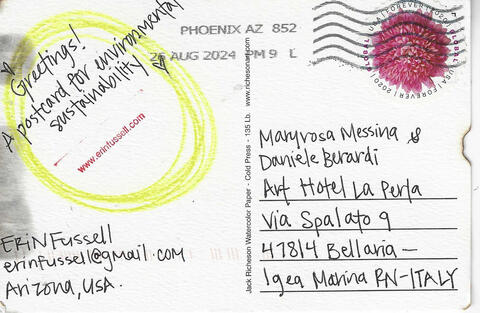 Greetings!
A postcard for environmental
sustainability
www.erinfussell.com
ERiN Fussell
erinfussell@gmail.com
Arizona, USA.
Jack Richeson Watercolor Paper - Cold Press - 135 Lb. www.richesonart.com
PHOENIX AZ 852
26 AUG 2024 PM 9 L
GLOBAL USA FOREVER 2020 GLOBAL USA FOREVER 2020
Maryrosa Messina &
Daniele Berardi
Art Hotel La Perla
Via Spalato 9
47814 Bellaria –
Igea Marina RN-ITALY